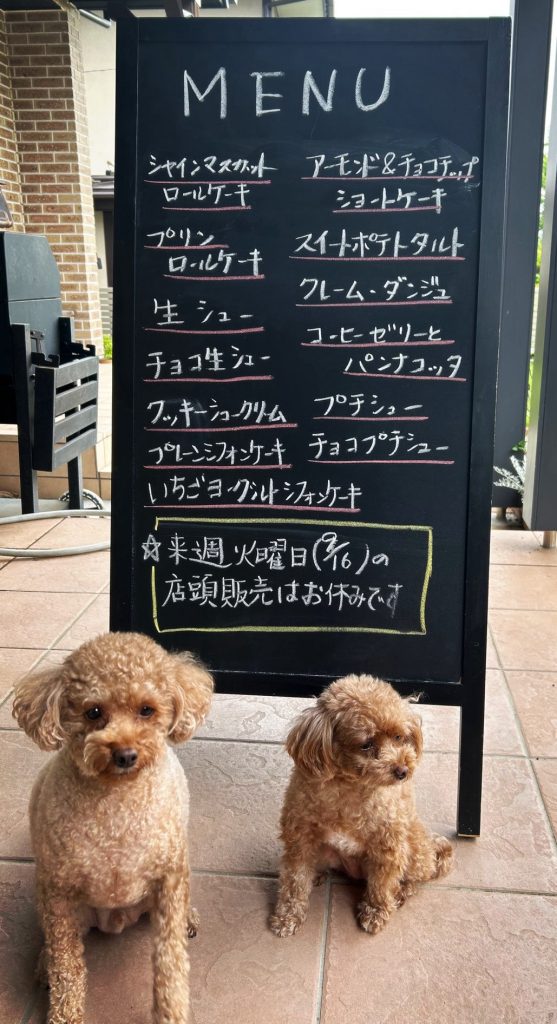 MENU
シャインマスカット
ロールケーキ
プリン
ロールケーキ
生シュー
チョコ生シュー
クッキーシュークリーム
プレーンシフォンケーキ
いちごヨーグルトシフォンケーキ
アーモンド&チョコチップ
ショートケーキ
スイートポテトタルト
クレーム・ダンジュ
コーヒーゼリーと
パンナコッタ
プチシュー
チョコプチシュー
☆来週火曜日(9/16)の
店頭販売はお休みです